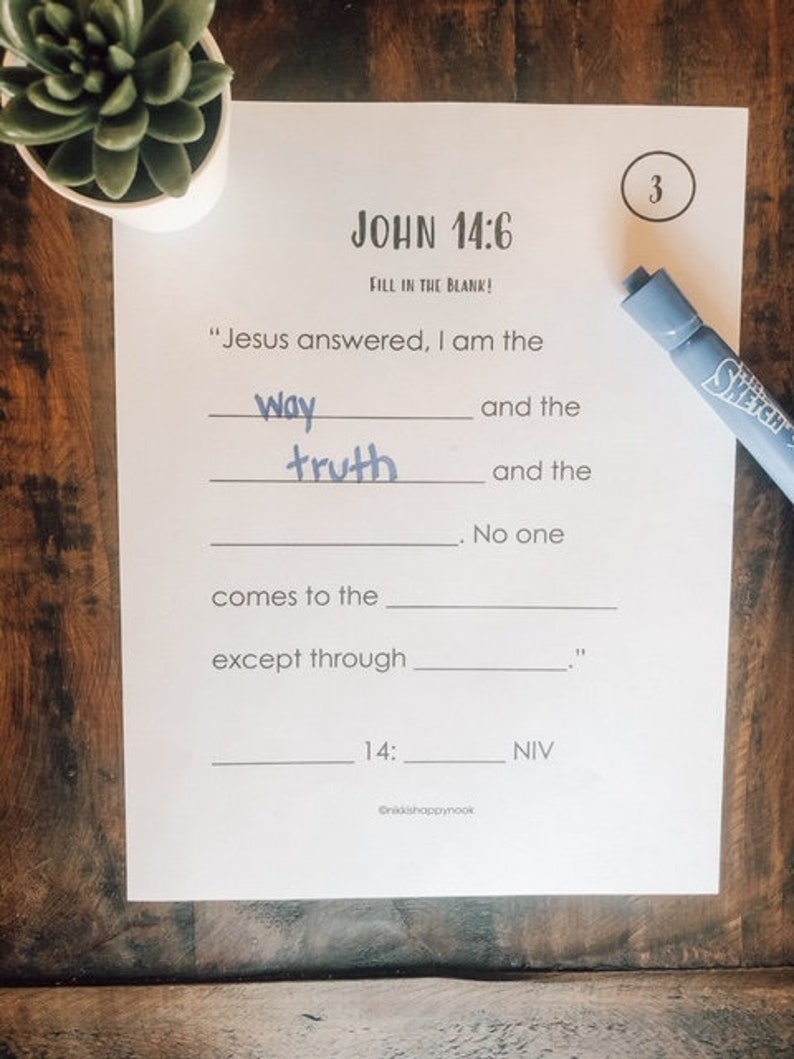 3
John 14:6
Fill in the Blank!
"Jesus answered, I am the
way and the
truth and the
. No one
comes to the
except through ."
14: NIV
©nikkishappynook
Sketch